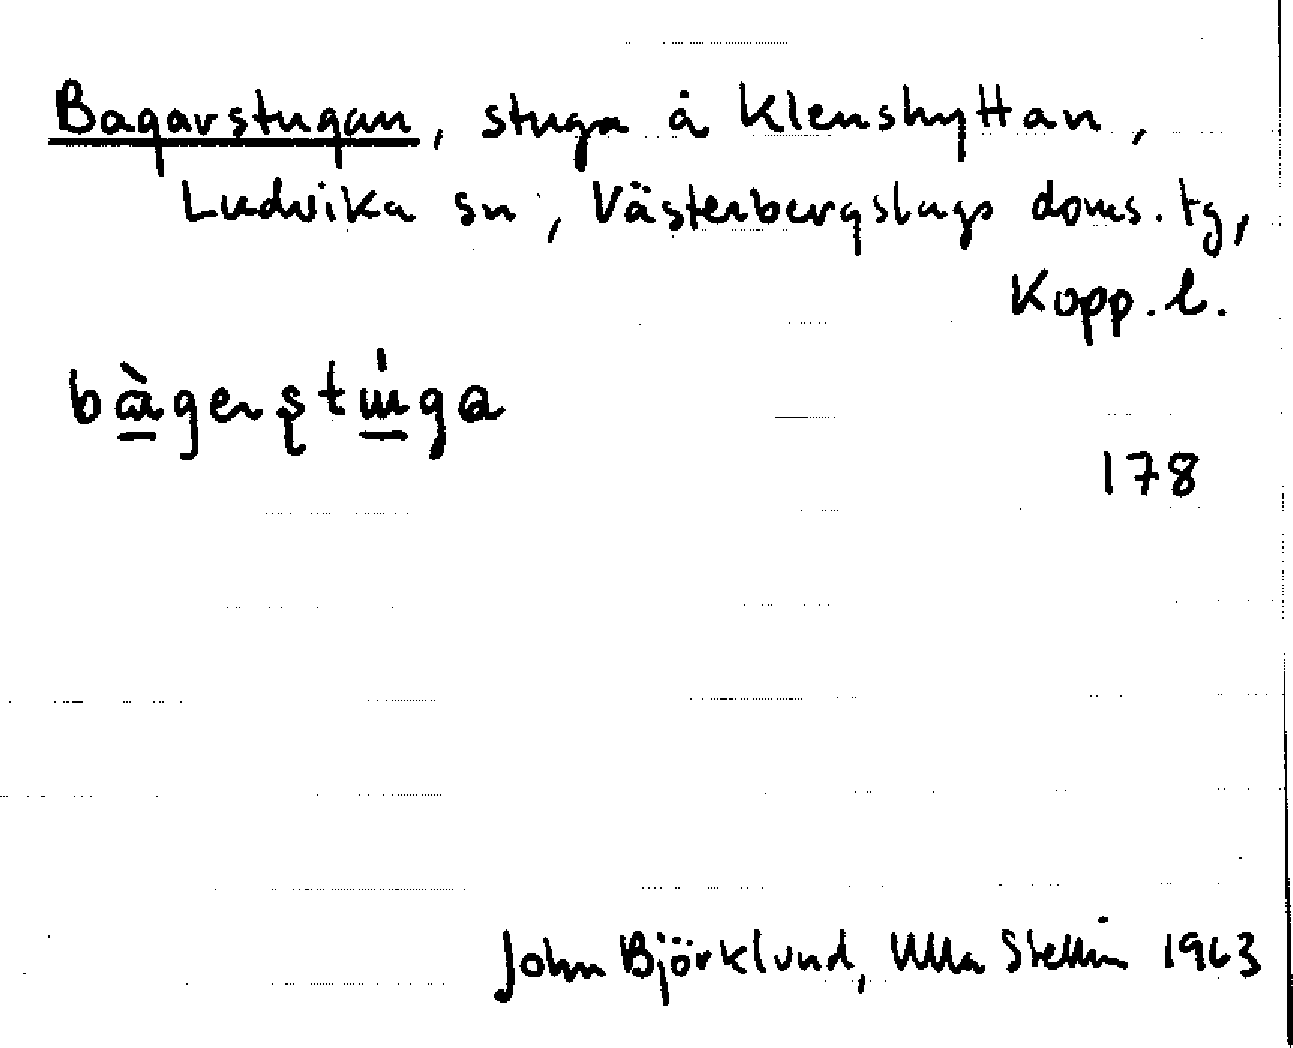 Bagarstugan, stuga å Klenshyttan,
Ludvika sn, Västerbergslags doms. tg,
Kopp. l.
bàgerstúga
178
John Björklund, Ulla Stellin 1963